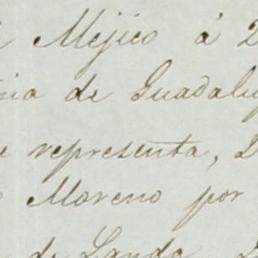 Méjico á 2
de Guadalu
representa,
Moreno por
de Landa